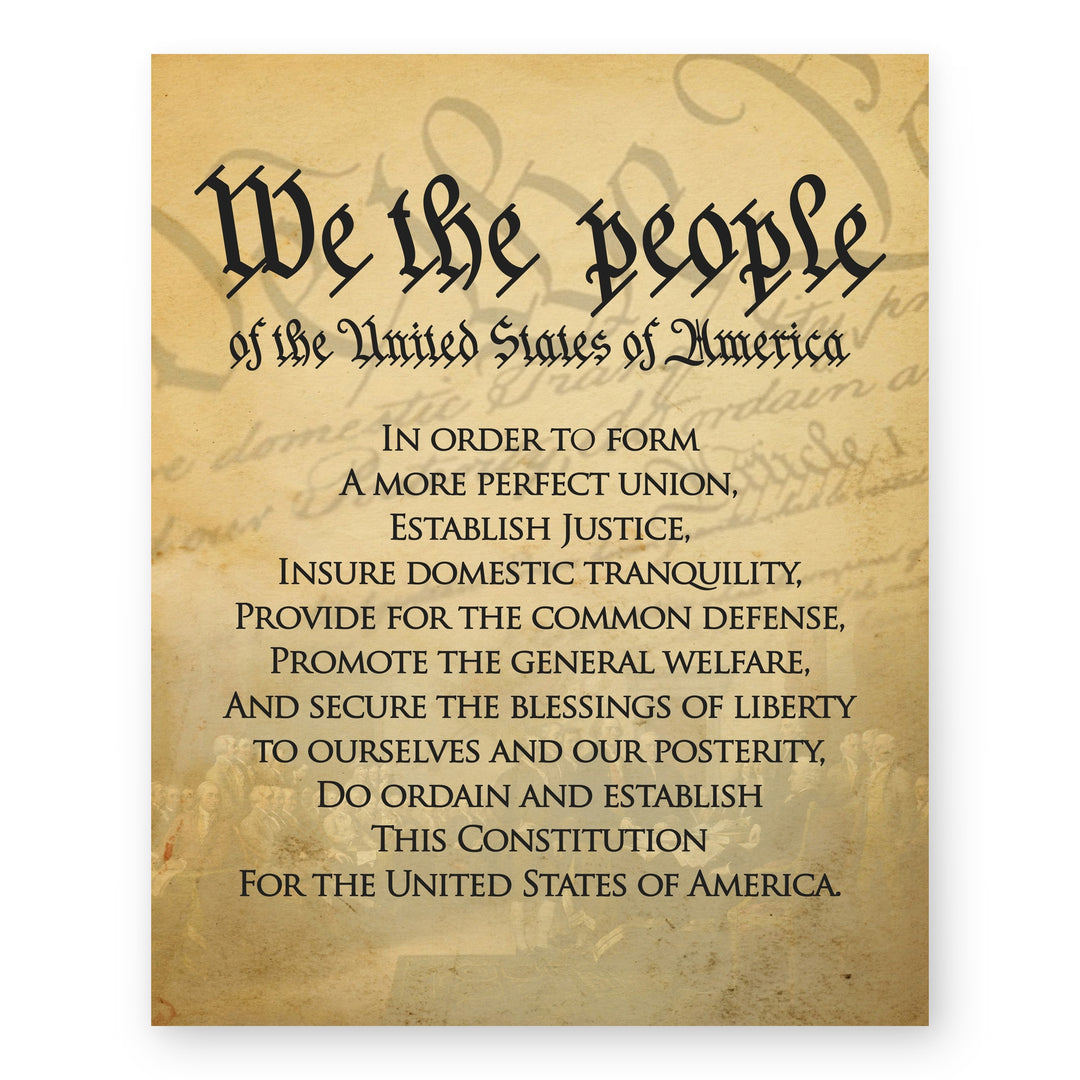 We the people
of the United States of America
In order to form
a more perfect union,
Establish Justice,
Insure domestic tranquility,
Provide for the common defense,
Promote the general welfare,
And secure the blessings of liberty
to ourselves and our posterity,
Do ordain and establish
This Constitution
For the United States of America.